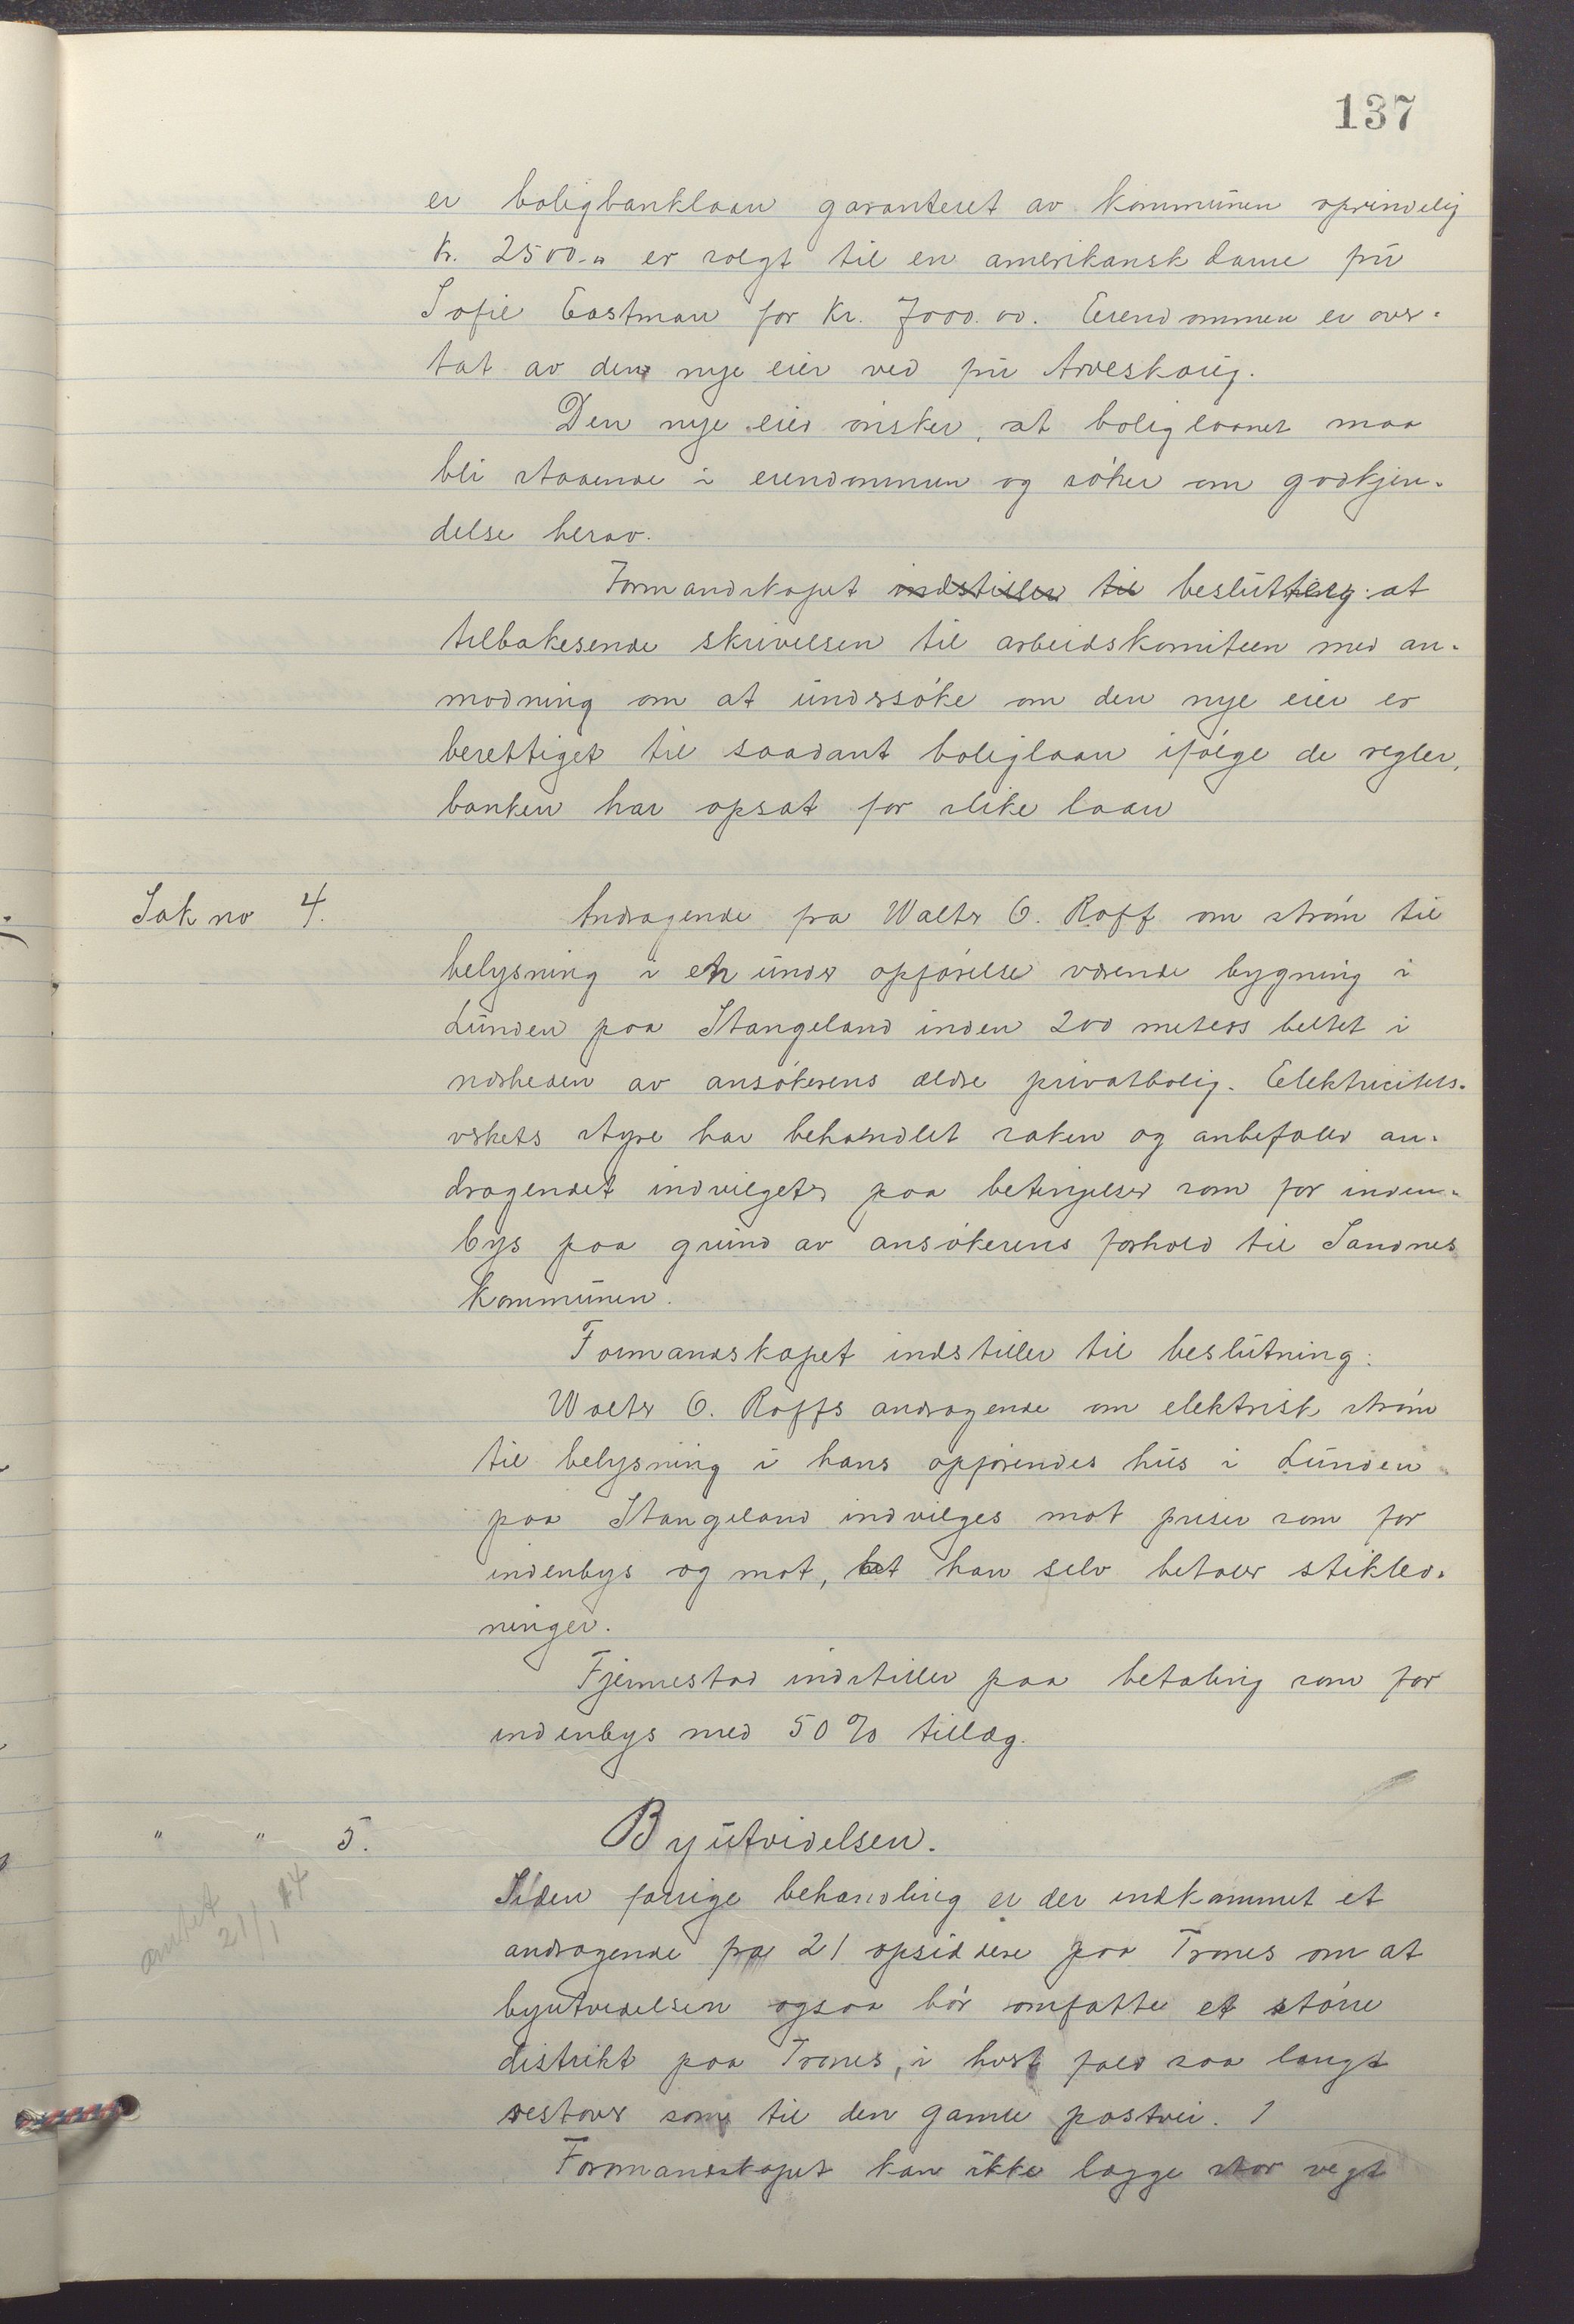 137
er boligbanklaan garanteret av kommunen oprindelig
Kr. 2500.- er solgt til en amerikansk dame fru
Sofie Eastman for Kr. 7000.00. Eiendommen er over-
tat av den nye eier ved fru Arveskoug.
Den nye eier ønsker, at boliglaanet maa
bli staaende i eiendommen og søker om godkjen-
delse herav.
Formandskapet indstiller til beslutning: at
tilbakesende skrivelsen til arbeidskomiteen med an-
modning om at undersøke om den nye eier er
berettiget til saadant boliglaan ifølge de regler,
banken har opsat for slike laan
Sak no 4. Andragende fra Walter O. Roff om strøm til
belysning i en under opførelse værende bygning i
Lunden paa Stangeland inden 200 meters beltet i
nærheden av ansøkerens ældre privatbolig. Elektricitets-
verkets styre har behandlet saken og anbefaler an-
dragendet indvilget paa betingelser som for inden-
bys paa grund av ansøkerens forhold til Sandnes
kommunen.
Formandskapet indstiller til beslutning:
Walter O. Roffs andragende om elektrisk strøm
til belysning i hans opførendes hus i Lunden
paa Stangeland indvilges mot priser som for
indenbys og mot, at han selv betaler stikled-
ninger.
Fjermestad indstiller paa betaling som for
indenbys med 50% tillæg.
" " 5. Byutvidelsen.
Siden forrige behandling er der indkommet et
andragende fra 21 opsiddere paa Trones om at
byutvidelsen ogsaa bør omfatte et større
distrikt paa Trones, i hvert fald saa langt
vestover som til den gamle postvei.
Formandskapet kan ikke lægge stor vegt
21/1